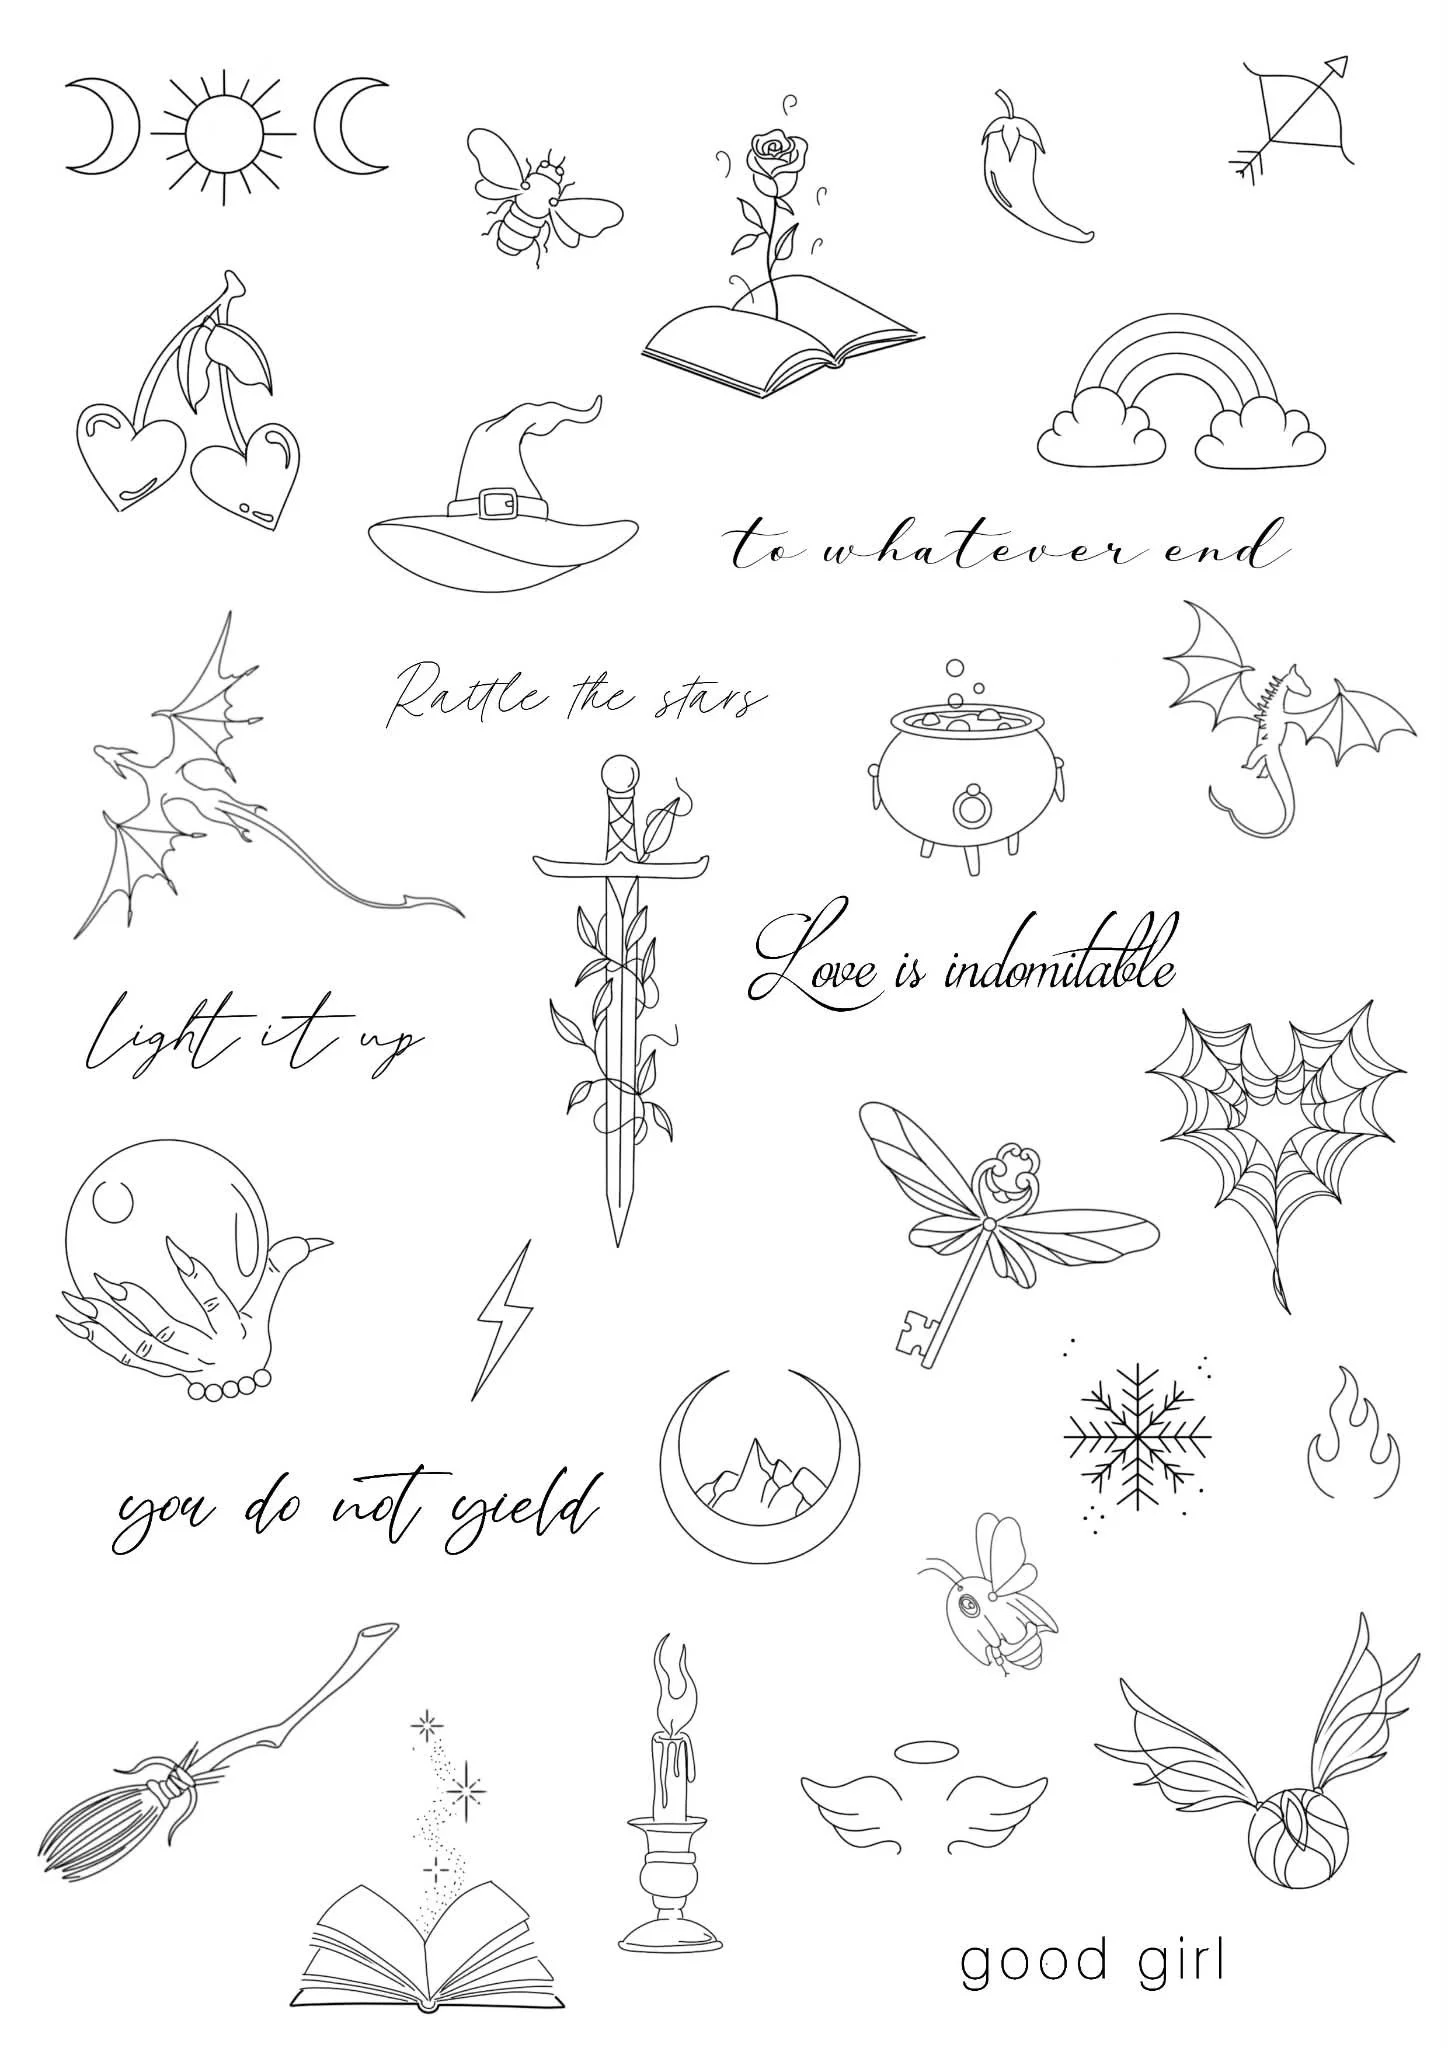 to whatever end
Rattle the stars
Love is indomitable
Light it up
you do not yield
good girl